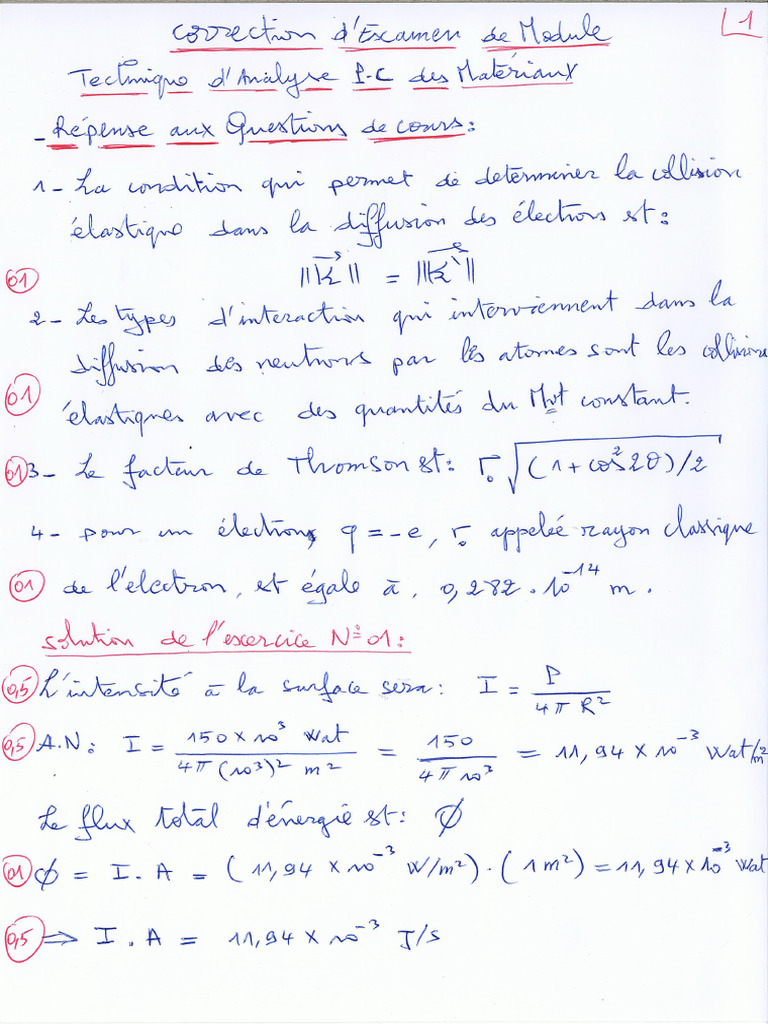 1
Correction d'Examen de Module
Technique d'Analyse P-C des Matériaux
- Répense aux Questions de cours:
1 - La condition qui permet de déterminer la collision
élastique dans la diffusion des électrons est:
01 ||K⃗|| = ||K⃗'||
2 - Les types d'interaction qui interviennent dans la
diffusion des neutrons par les atomes sont les collisions
01 élastiques avec des quantités du Mvt constant.
01 3 - Le facteur de Thomson est: r₀ √(1+cos²2θ)/2
4 - pour un électron, q = -e, r₀ appelée rayon classique
01 de l'électron, est égale à, 0,282 . 10⁻¹⁴ m.
solution de l'exercice N° 01:
0,5 L'intensité à la surface sera: I = P / 4π R²
0,5 A.N: I = 150 × 10³ Wat / 4π (10³)² m² = 150 / 4π 10³ = 11,94 × 10⁻³ Wat/m²
Le flux total d'énergie est: ϕ
01 ϕ = I . A = (11,94 × 10⁻³ W/m²) . (1 m²) = 11,94 × 10⁻³ Wat
0,5 ⇒ I . A = 11,94 × 10⁻³ J/s